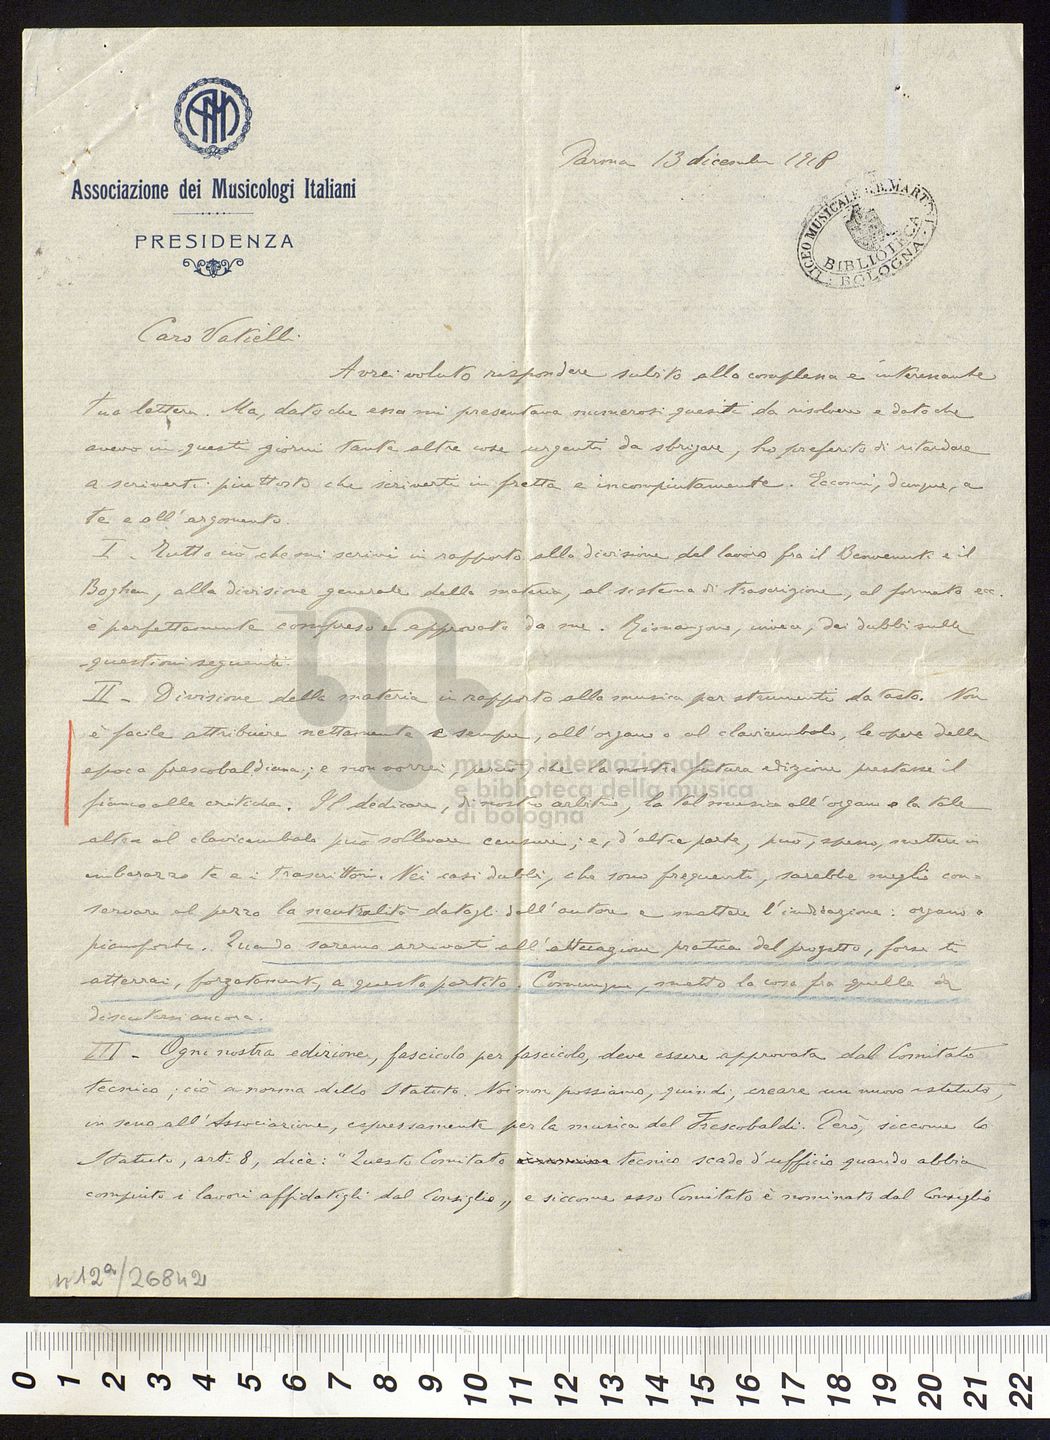 AMI
Associazione dei Musicologi Italiani
PRESIDENZA
Parma 13 dicembre 1918
LICEO MUSICALE G.B. MARTINI
BIBLIOTECA
BOLOGNA
Caro Vatielli.
Avrei voluto rispondere subito alla complessa e interessante
tua lettera. Ma, dato che essa mi presentava numerosi quesiti da risolvere e dato che
avevo in questi giorni tante altre cose urgenti da sbrigare, ho preferito di ritardare
a scriverti piuttosto che scriverti in fretta e incompiutamente. Eccomi, dunque, a
te e all'argomento.
I - Tutto ciò che mi scrivi in rapporto alla divisione del lavoro fra il Benvenuti e il
Boghen, alla divisione generale della materia, al sistema di trascrizione, al formato ecc.
è perfettamente compreso e approvato da me. Rimangono, invece, dei dubbi sulle
questioni seguenti.
II - Divisione della materia in rapporto alla musica per strumenti da tasto. Non
è facile attribuire nettamente e sempre, all'organo o al clavicembalo, le opere della
epoca frescobaldiana; e non vorrei, perciò, che la nostra futura edizione prestasse il
fianco alle critiche. Il dedicare, di nostro arbitrio, la tal musica all'organo o la tale
altra al clavicembalo può sollevare censure; e, d'altra parte, può, spesso, mettere in
imbarazzo te e i trascrittori. Nei casi dubbi, che sono frequenti, sarebbe meglio con-
servare al pezzo la neutralità datagli dall'autore e mettere l'indicazione: organo o
pianoforte. Quando saremo arrivati all'attuazione pratica del progetto, forse ti
atterrai, forzatamente, a questo partito. Comunque, metto la cosa fra quelle da
discutersi ancora.
III - Ogni nostra edizione, fascicolo per fascicolo, deve essere approvata dal Comitato
tecnico; ciò a norma dello Statuto. Noi non possiamo, quindi, creare un nuovo istituto,
in seno all'Associazione, espressamente per la musica del Frescobaldi. Però, siccome lo
Statuto, art. 8, dice: "Questo Comitato tecnico scade d'ufficio quando abbia
compiuto i lavori affidatigli dal Consiglio„ e siccome esso Comitato è nominato dal Consiglio
museo internazionale
e biblioteca della musica
di bologna
n 12a/26842
0 1 2 3 4 5 6 7 8 9 10 11 12 13 14 15 16 17 18 19 20 21 22